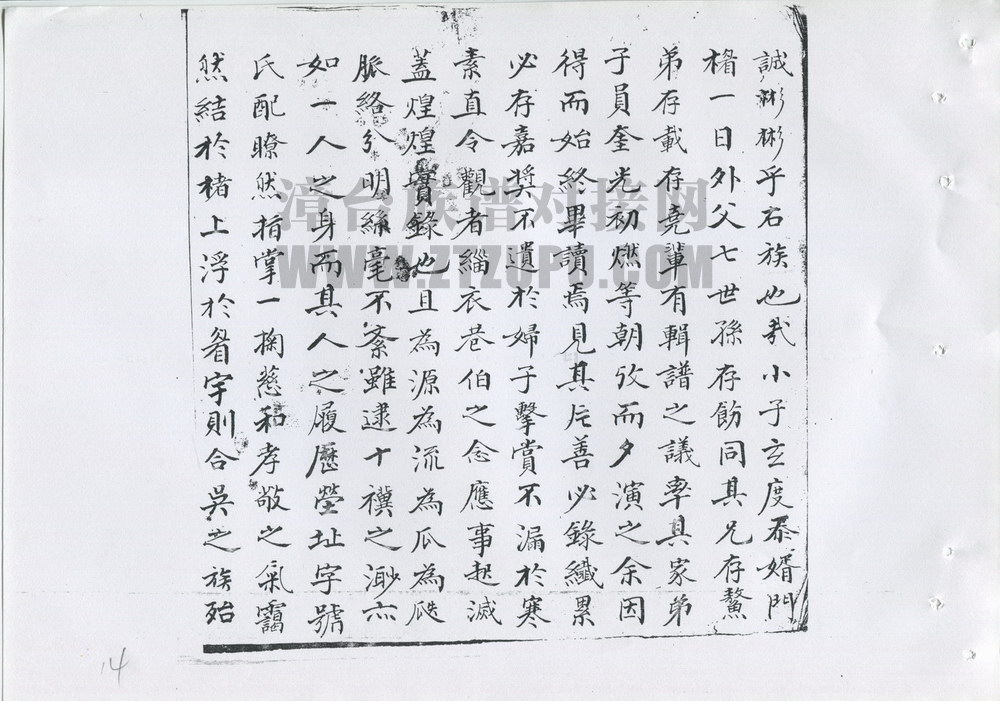 誠彬彬乎右族也我小子玄度忝婿門
楣一日外父七世孫存飭同其兄存鰲
弟存載存堯輩有輯譜之議率其家弟
子員奎光初燃等朝攷而夕演之余因
得而始終畢讀焉見其片善必錄纖累
必存嘉奨不遺於婦子擊賞不漏於寒
素直令觀者緇衣巷伯之念應事起滅
蓋煌煌實錄也且為源為流為瓜為瓞
脈絡分明絲毫不紊雖逮十禩之渺亦
如一人之身而其人之履歷塋址字號
氏配瞭然指掌一掬慈和孝敬之氣靄
然結於楮上浮於眉宇則合吳之族殆
漳台族谱对接网
WWW.ZTZUPU.COM
14